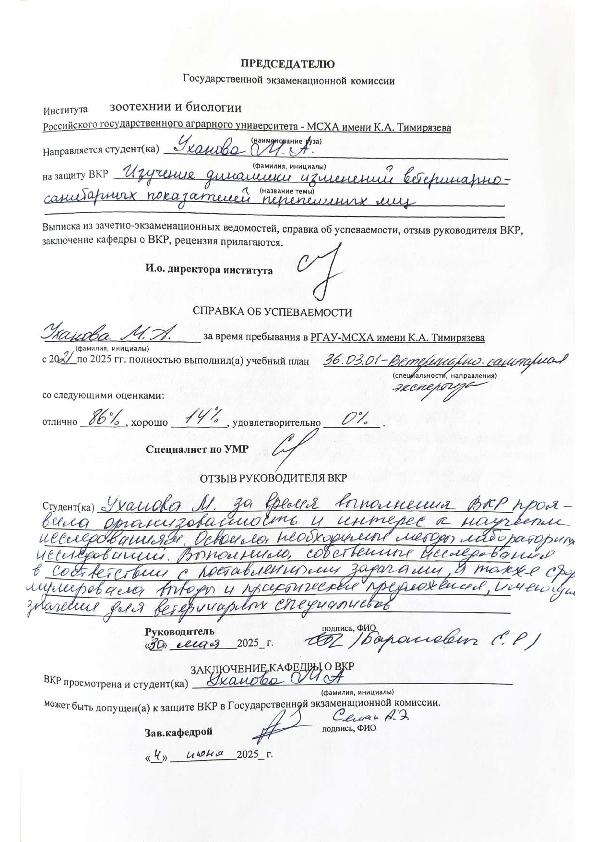 ПРЕДСЕДАТЕЛЮ
Государственной экзаменационной комиссии
Института зоотехнии и биологии
Российского государственного аграрного университета - МСХА имени К.А. Тимирязева
(наименование вуза)
Направляется студент(ка) Уханова М.А.
(фамилия, инициалы)
на защиту ВКР Изучение динамики изменений ветеринарно-
(название темы)
санитарных показателей перепелиных яиц
Выписка из зачетно-экзаменационных ведомостей, справка об успеваемости, отзыв руководителя ВКР,
заключение кафедры о ВКР, рецензия прилагаются.
И.о. директора института
СПРАВКА ОБ УСПЕВАЕМОСТИ
Уханова М.А. за время пребывания в РГАУ-МСХА имени К.А. Тимирязева
(фамилия, инициалы)
с 2021 по 2025 гг. полностью выполнил(а) учебный план 36.03.01-Ветеринарно-санитарная
(специальности, направления)
экспертиза
со следующими оценками:
отлично 86%, хорошо 14%, удовлетворительно 0%.
Специалист по УМР
ОТЗЫВ РУКОВОДИТЕЛЯ ВКР
Студент(ка) Уханова М. за время выполнения ВКР проя-
вила организованность и интерес к научным
исследованиям. Освоила необходимые методы лабораторн
исследований. Выполнила, собственные исследования
в соответствии с поставленными задачами, а также сфор
мулировала выводы и практические предложения, имеющи
значение для ветеринарных специалистов
Руководитель
подпись, ФИО
«30» мая 2025 г. /Баранович Е.Р/
ЗАКЛЮЧЕНИЕ КАФЕДРЫ О ВКР
ВКР просмотрена и студент(ка) Уханова М.А
(фамилия, инициалы)
может быть допущен(а) к защите ВКР в Государственной экзаменационной комиссии.
Зав.кафедрой А.Э.
подпись, ФИО
«4» июня 2025 г.